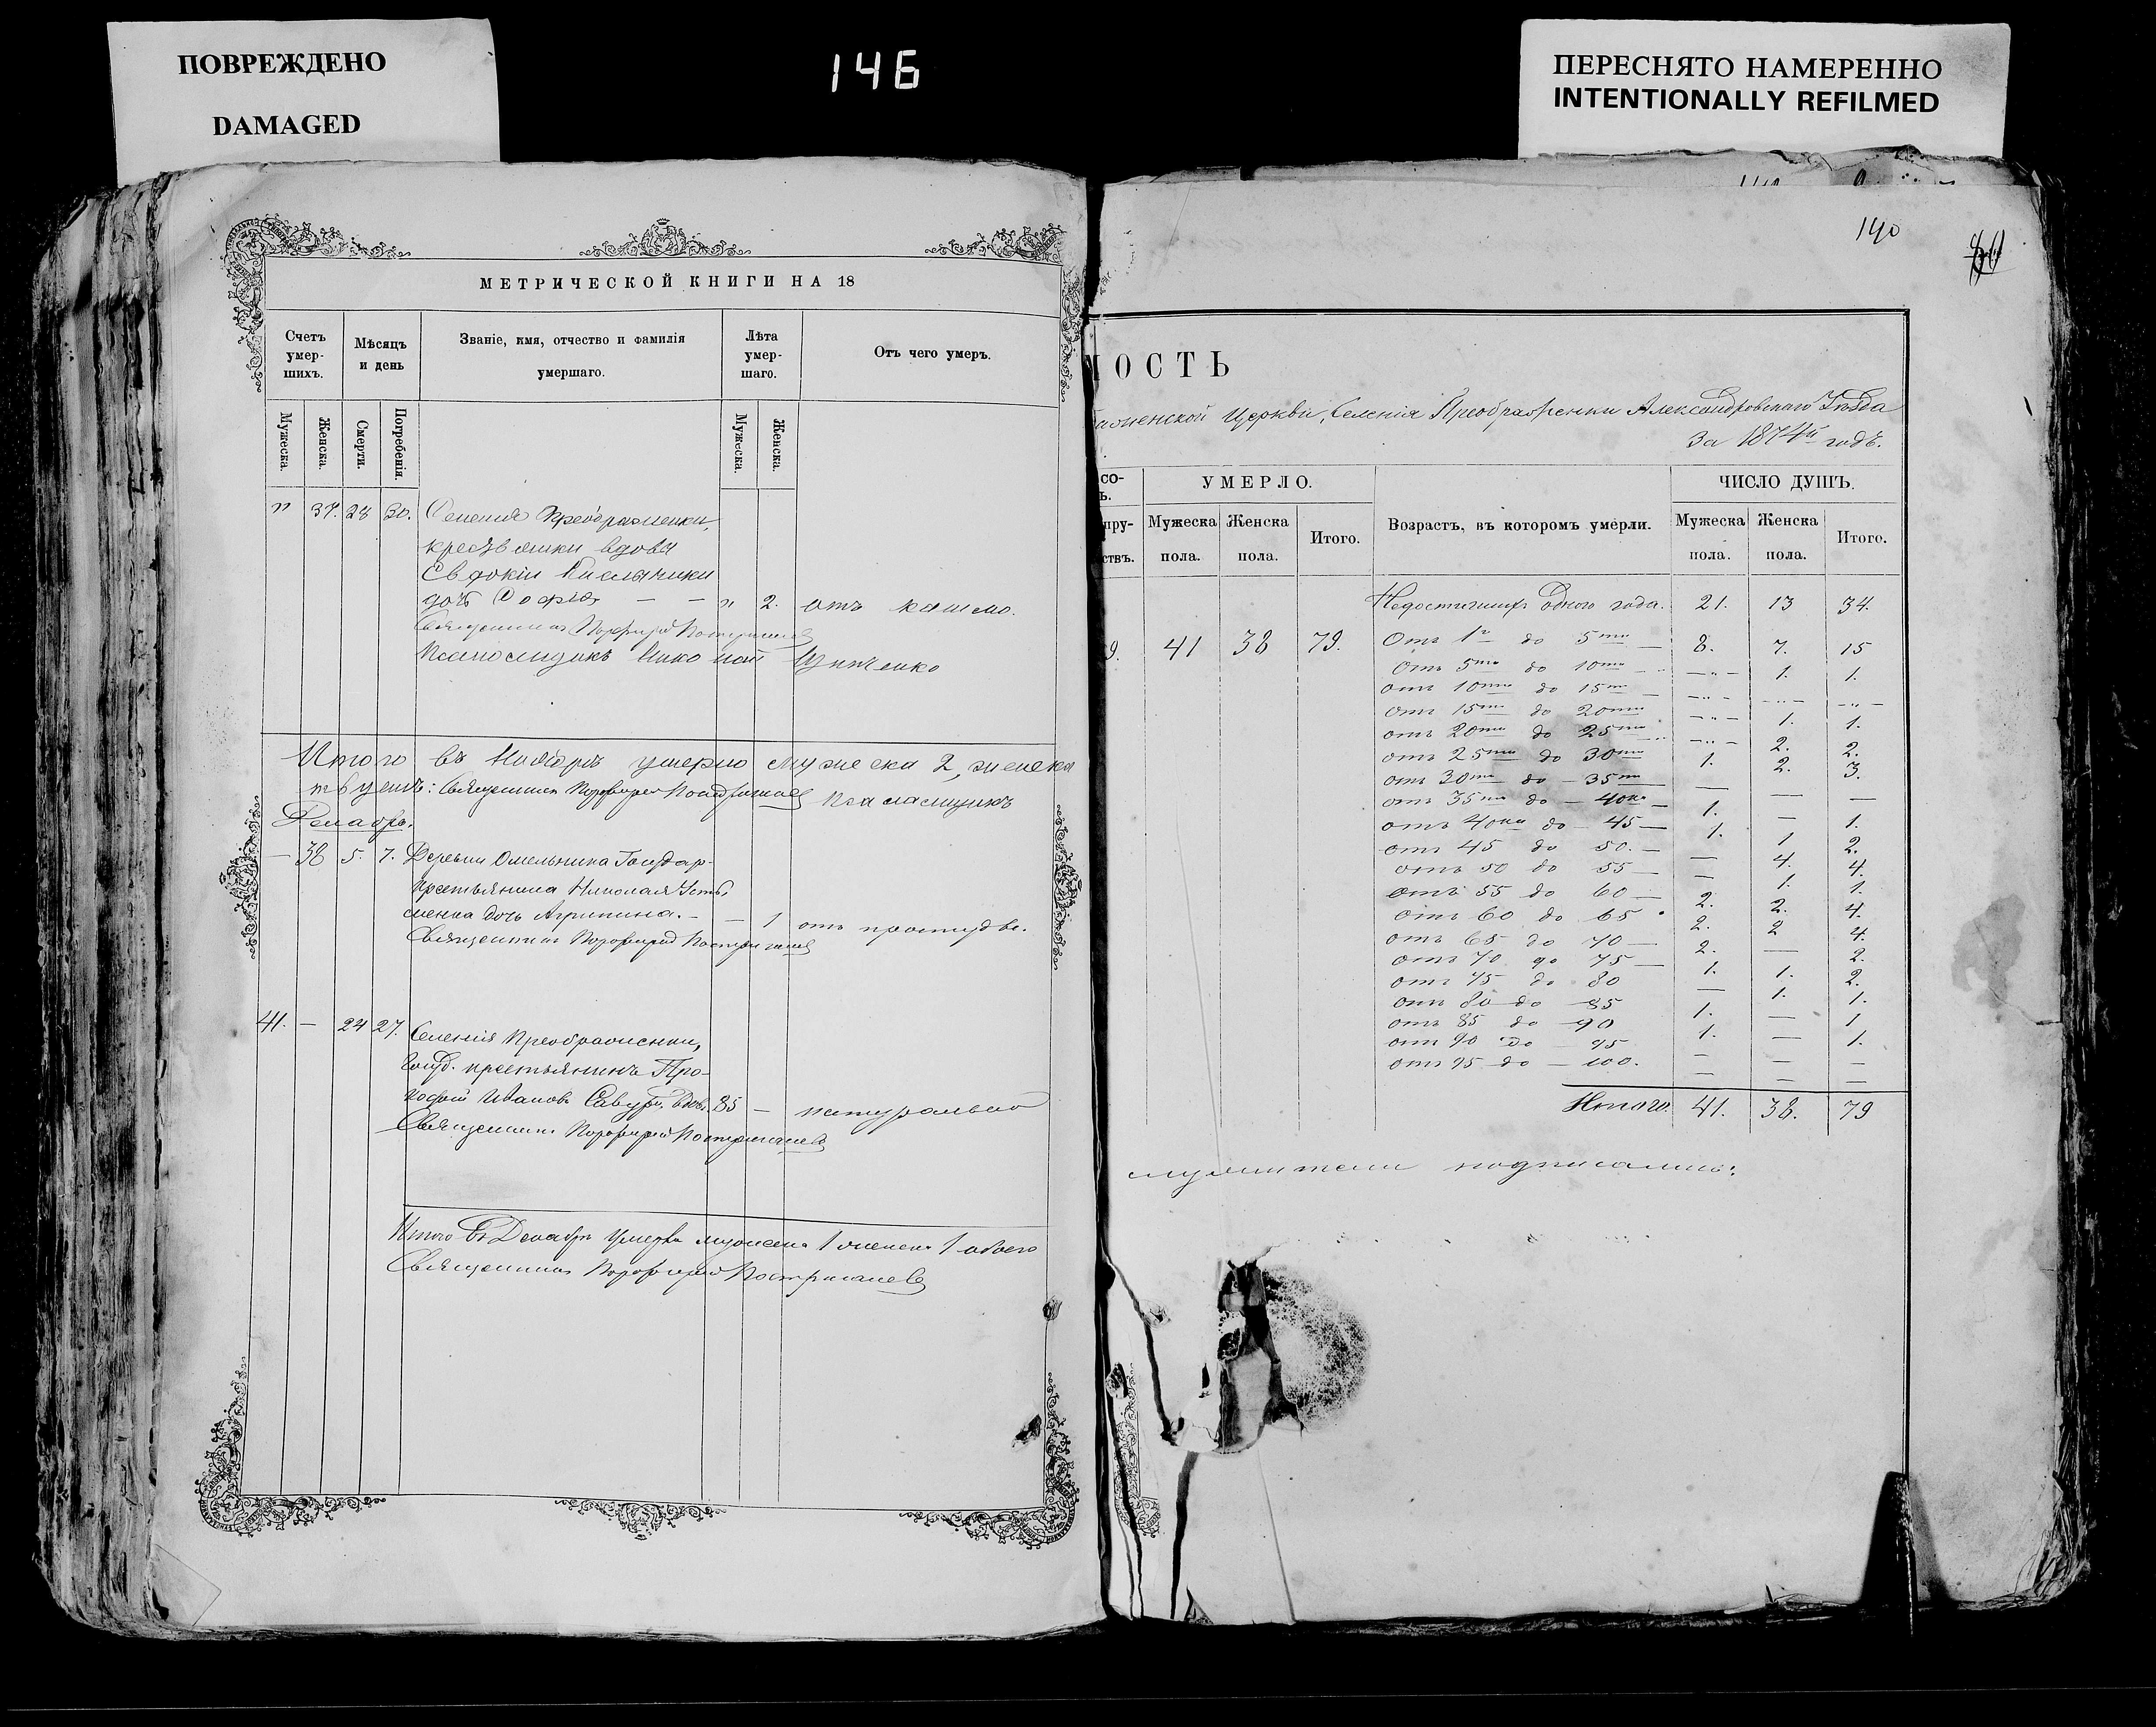 ПОВРЕЖДЕНО
DAMAGED
146
ПЕРЕСНЯТО НАМЕРЕННО
INTENTIONALLY REFILMED
МЕТРИЧЕСКОЙ КНИГИ НА 18
Счетъ умер-шихъ.
Мѣсяцъ и день
Званіе, имя, отчество и фамилія умершаго.
Лѣта умер-шаго.
Отъ чего умеръ.
Мужеска.
Женска.
Смерти.
Погребенія.
Мужеска.
Женска.
" 37. 28 30. Селенія Преображенки,
вдовы
Евдокіи
дочь Софія — — " 2. отъ кашлю.
Священникъ Порфирій
Псаломщикъ
Итого въ Ноябрѣ умерло мужеска 2, женска
Священникъ Порфирій Псаломщикъ
Декабрь.
— 38 5. 7. Деревни Омельника Государ.
крестьянина Николая Усть
менка дочь Агрипина. — — 1 отъ простуды.
Священникъ Порфирій
41. — 24 27. Селенія Преображенки,
Госуд. крестьянинъ Про-
кофій Ивановъ Савур. вдов. 85 — натурально
Священникъ Порфирій
Итого въ Декабрѣ умерло мужеска 1 женска 1 обоего
Священникъ Порфирій
140
МОСТЬ
Церкви, Селенія Преображенки Александровскаго Уѣзда
За 1874й годъ.
со-
ъ.
пру-
ствъ.
УМЕРЛО.
Мужеска пола.
Женска пола.
Итого.
Возрастъ, въ которомъ умерли.
ЧИСЛО ДУШЪ.
Мужеска пола.
Женска пола.
Итого.
Недостигшихъ Одного года. 21. 13 34.
9. 41 38 79. Отъ 1го до 5ти — 8. 7. 15
Отъ 5ти до 10ти — " — 1. 1.
отъ 10ти до 15ти — — " — — " — — " —
отъ 15ти до 20ти — " — 1. 1.
отъ 20ти до 25ти — " — 2. 2.
отъ 25ти до 30ти 1. 2. 3.
отъ 30ти до — 35ти — — —
отъ 35ти до — 40ка — 1. — 1.
отъ 40ка до — 45 — 1. 1 2.
отъ 45 до 50. — — 4. 4.
отъ 50 до 55 — — 1. 1.
отъ 55 до 60 — 2. 2. 4.
отъ 60 до 65 2. 2 4.
отъ 65 до 70 — 2. — 2.
отъ 70 до 75 — 1. 1. 2.
отъ 75 до 80 — 1. 1.
отъ 80 до 85 1. — 1
отъ 85 до 90 1. — 1.
отъ 90 до 95 — — —
отъ 95 до — 100. — — —
Итого. 41. 38. 79
подписались: